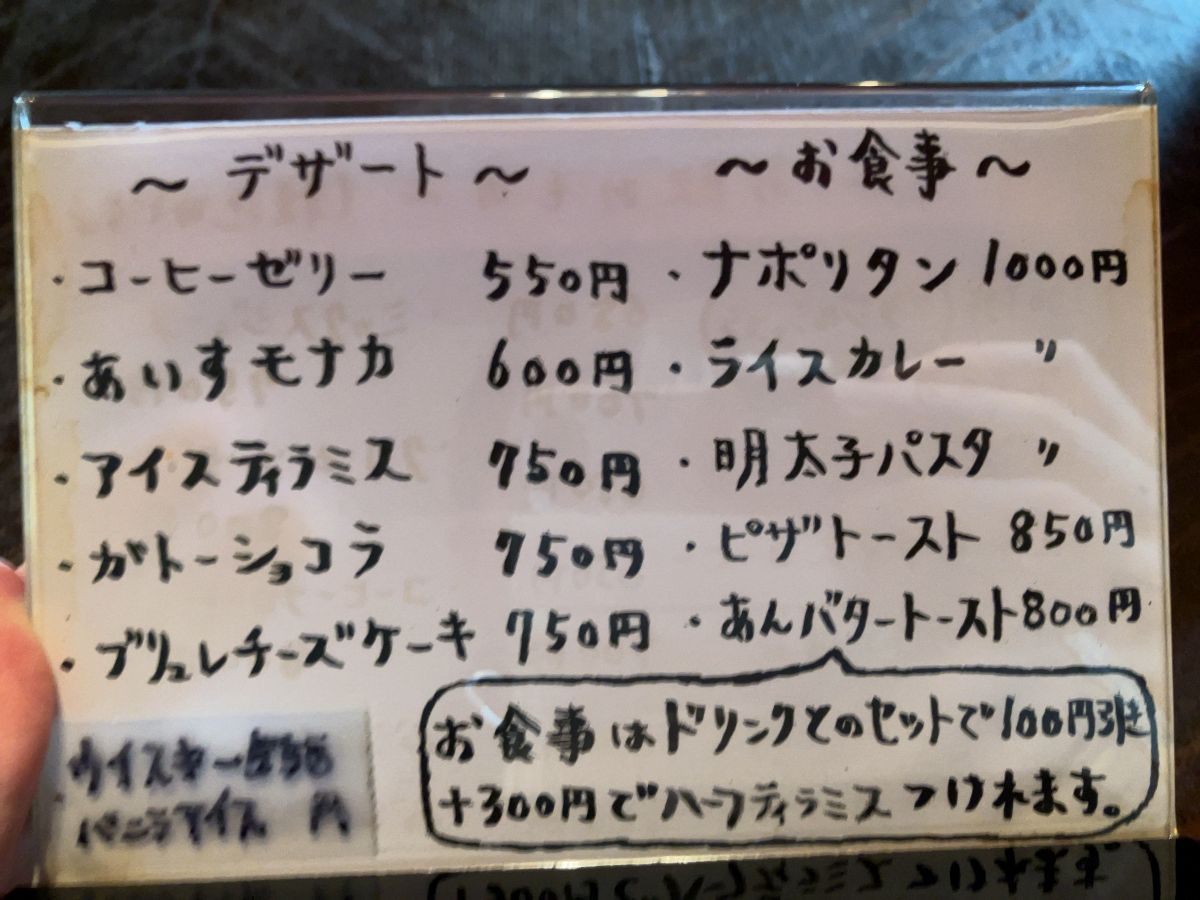 ～デザート～
・コーヒーゼリー 550円
・あいすモナカ 600円
・アイスティラミス 750円
・ガトーショコラ 750円
・ブリュレチーズケーキ 750円
ウイスキー
バニラアイス 円
～お食事～
・ナポリタン 1000円
・ライスカレー 〃
・明太子パスタ 〃
・ピザトースト 850円
・あんバタートースト 800円
お食事はドリンクとのセットで100円引き
+300円でハーフティラミスつけれます。